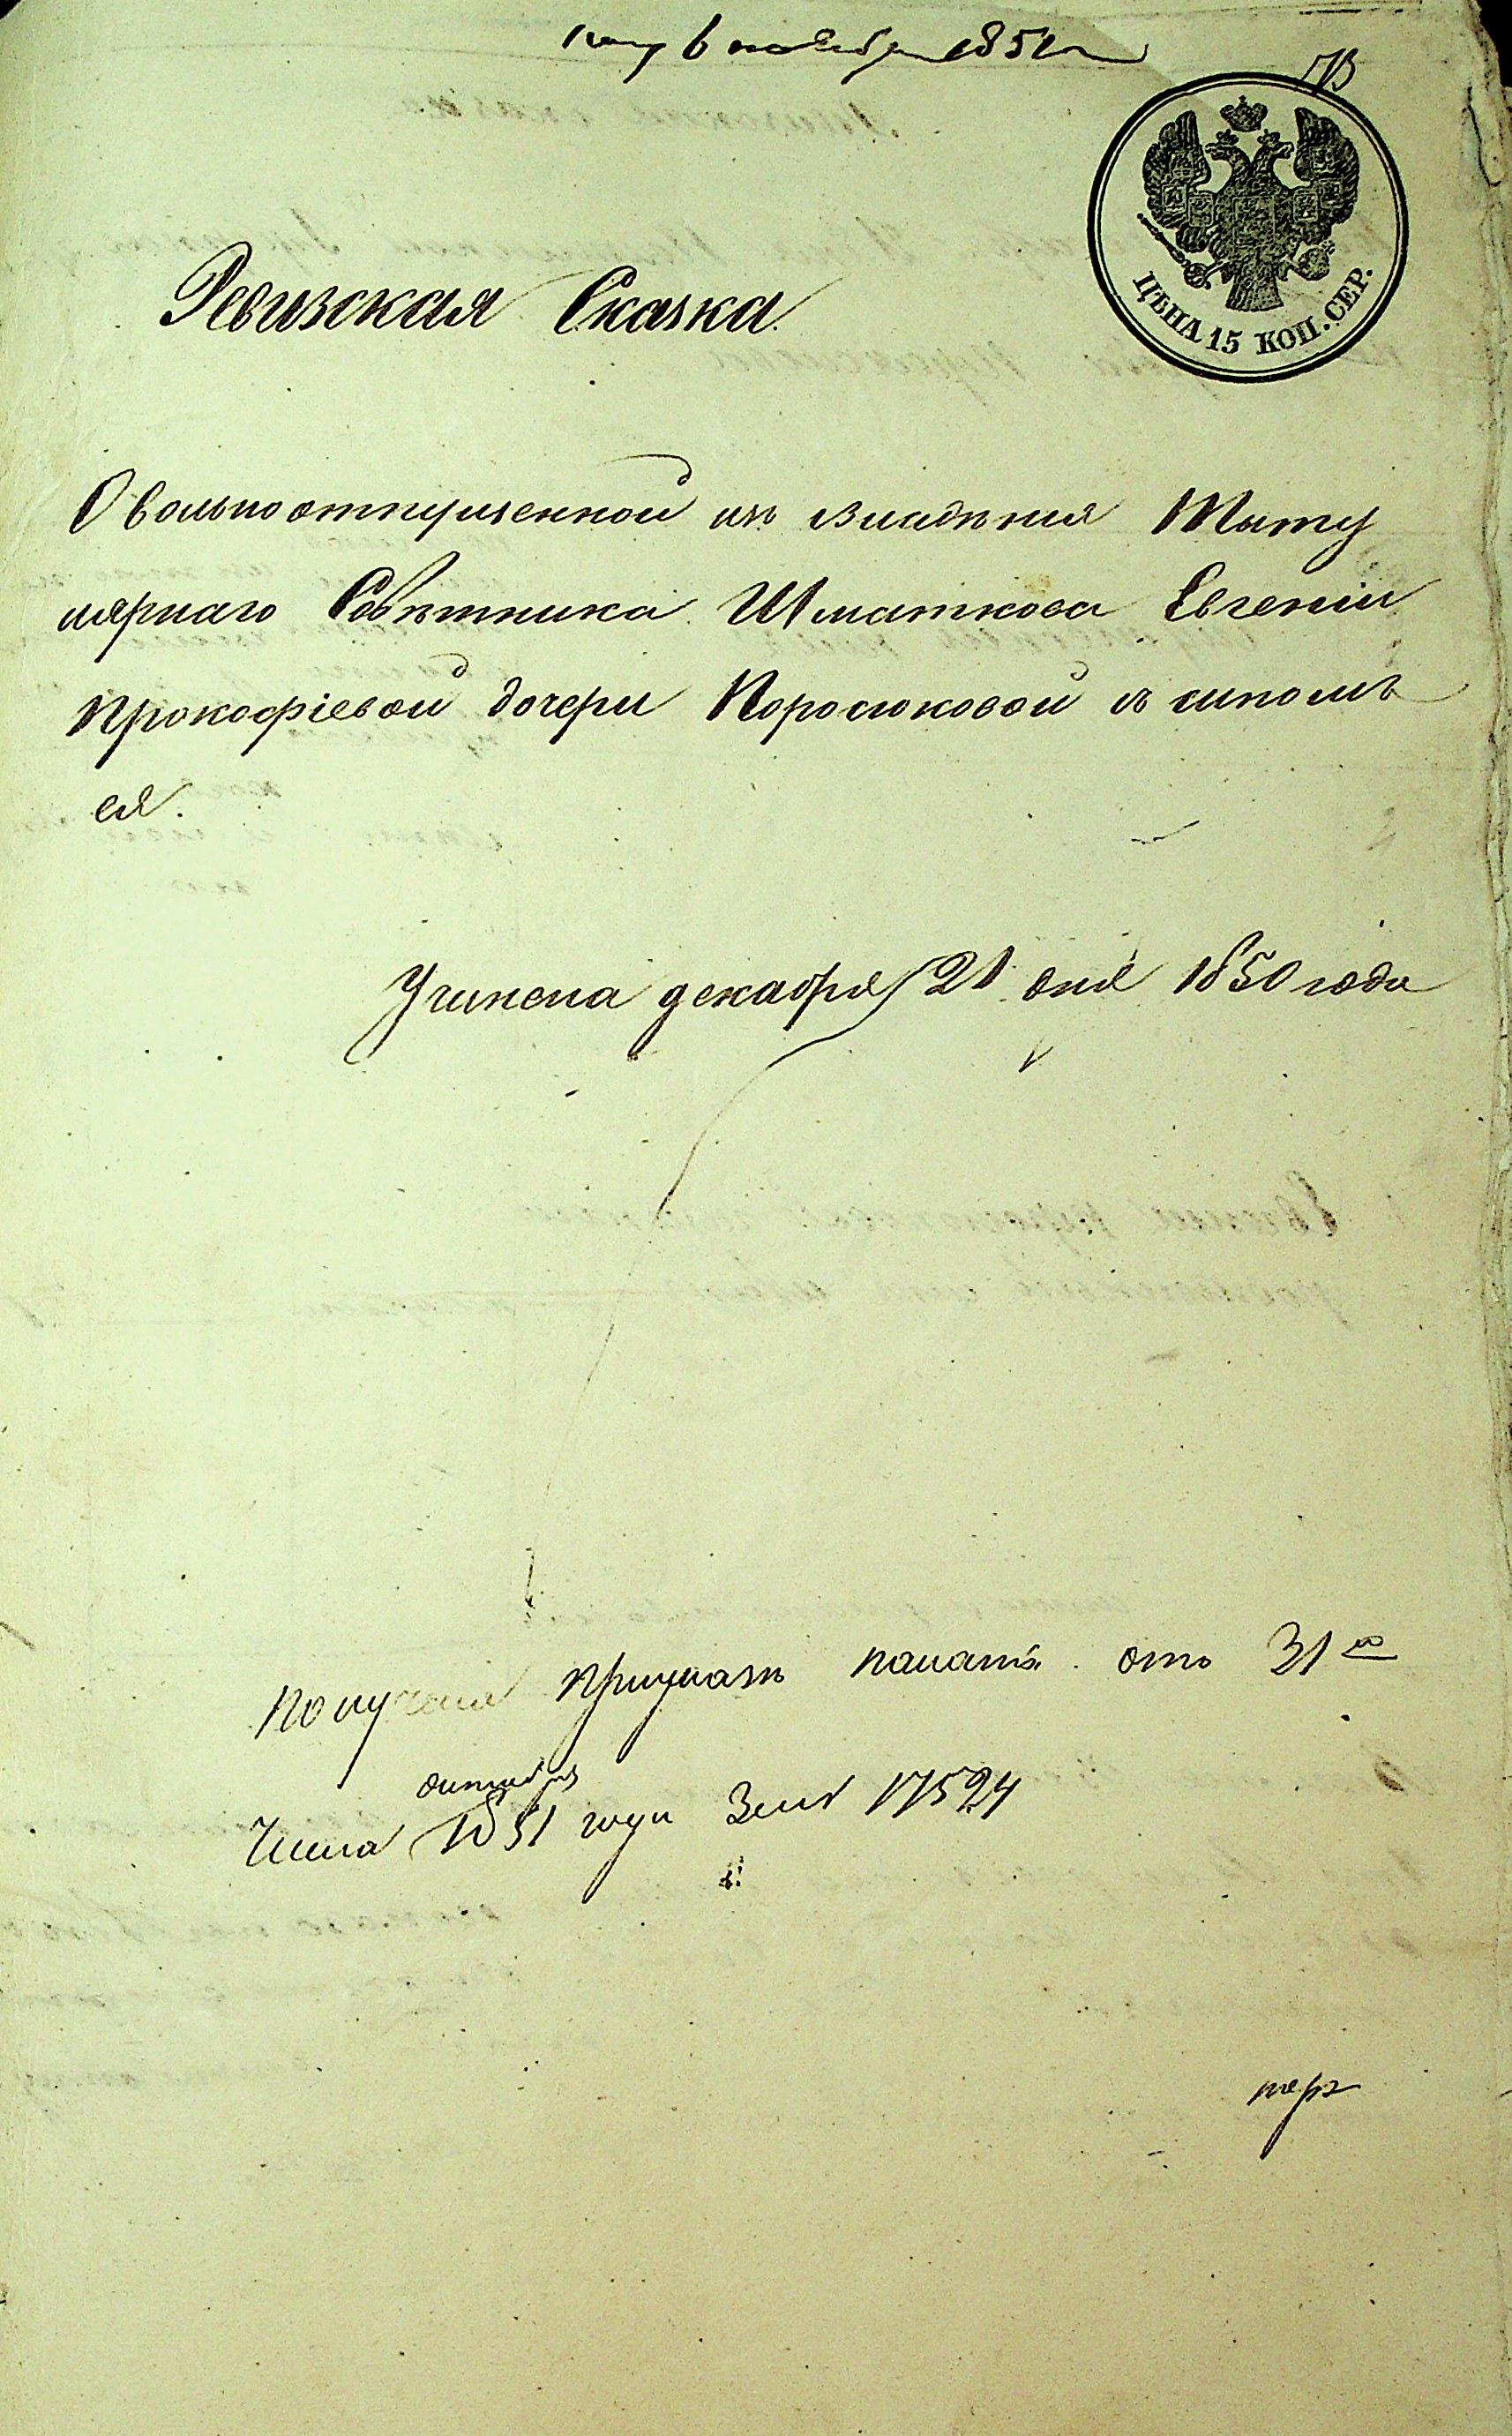 6 ноября 1851
ЦѢНА 15 КОП. СЕР.
Ревизская Сказка
О вольноотпущенной изъ владѣнiя Титу
лярнаго Совѣтника Шматкова Евгенiи
Прокофiевой дочери Поросюковой съ сыномъ
ея.
Учинена декабря 21 дня 1850 года
Получена при указѣ палаты отъ 31го
октября
Числа 1851 года За № 17524